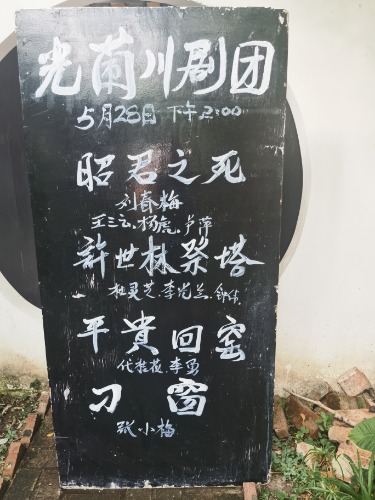 光蘭川剧团
5月28日 下午2:00
昭君之死
刘春梅
王三云、杨虎、卢萍
許世林祭塔
杜灵芝、李光兰
平貴回窑
代桂花 李勇
刁窗
张小梅